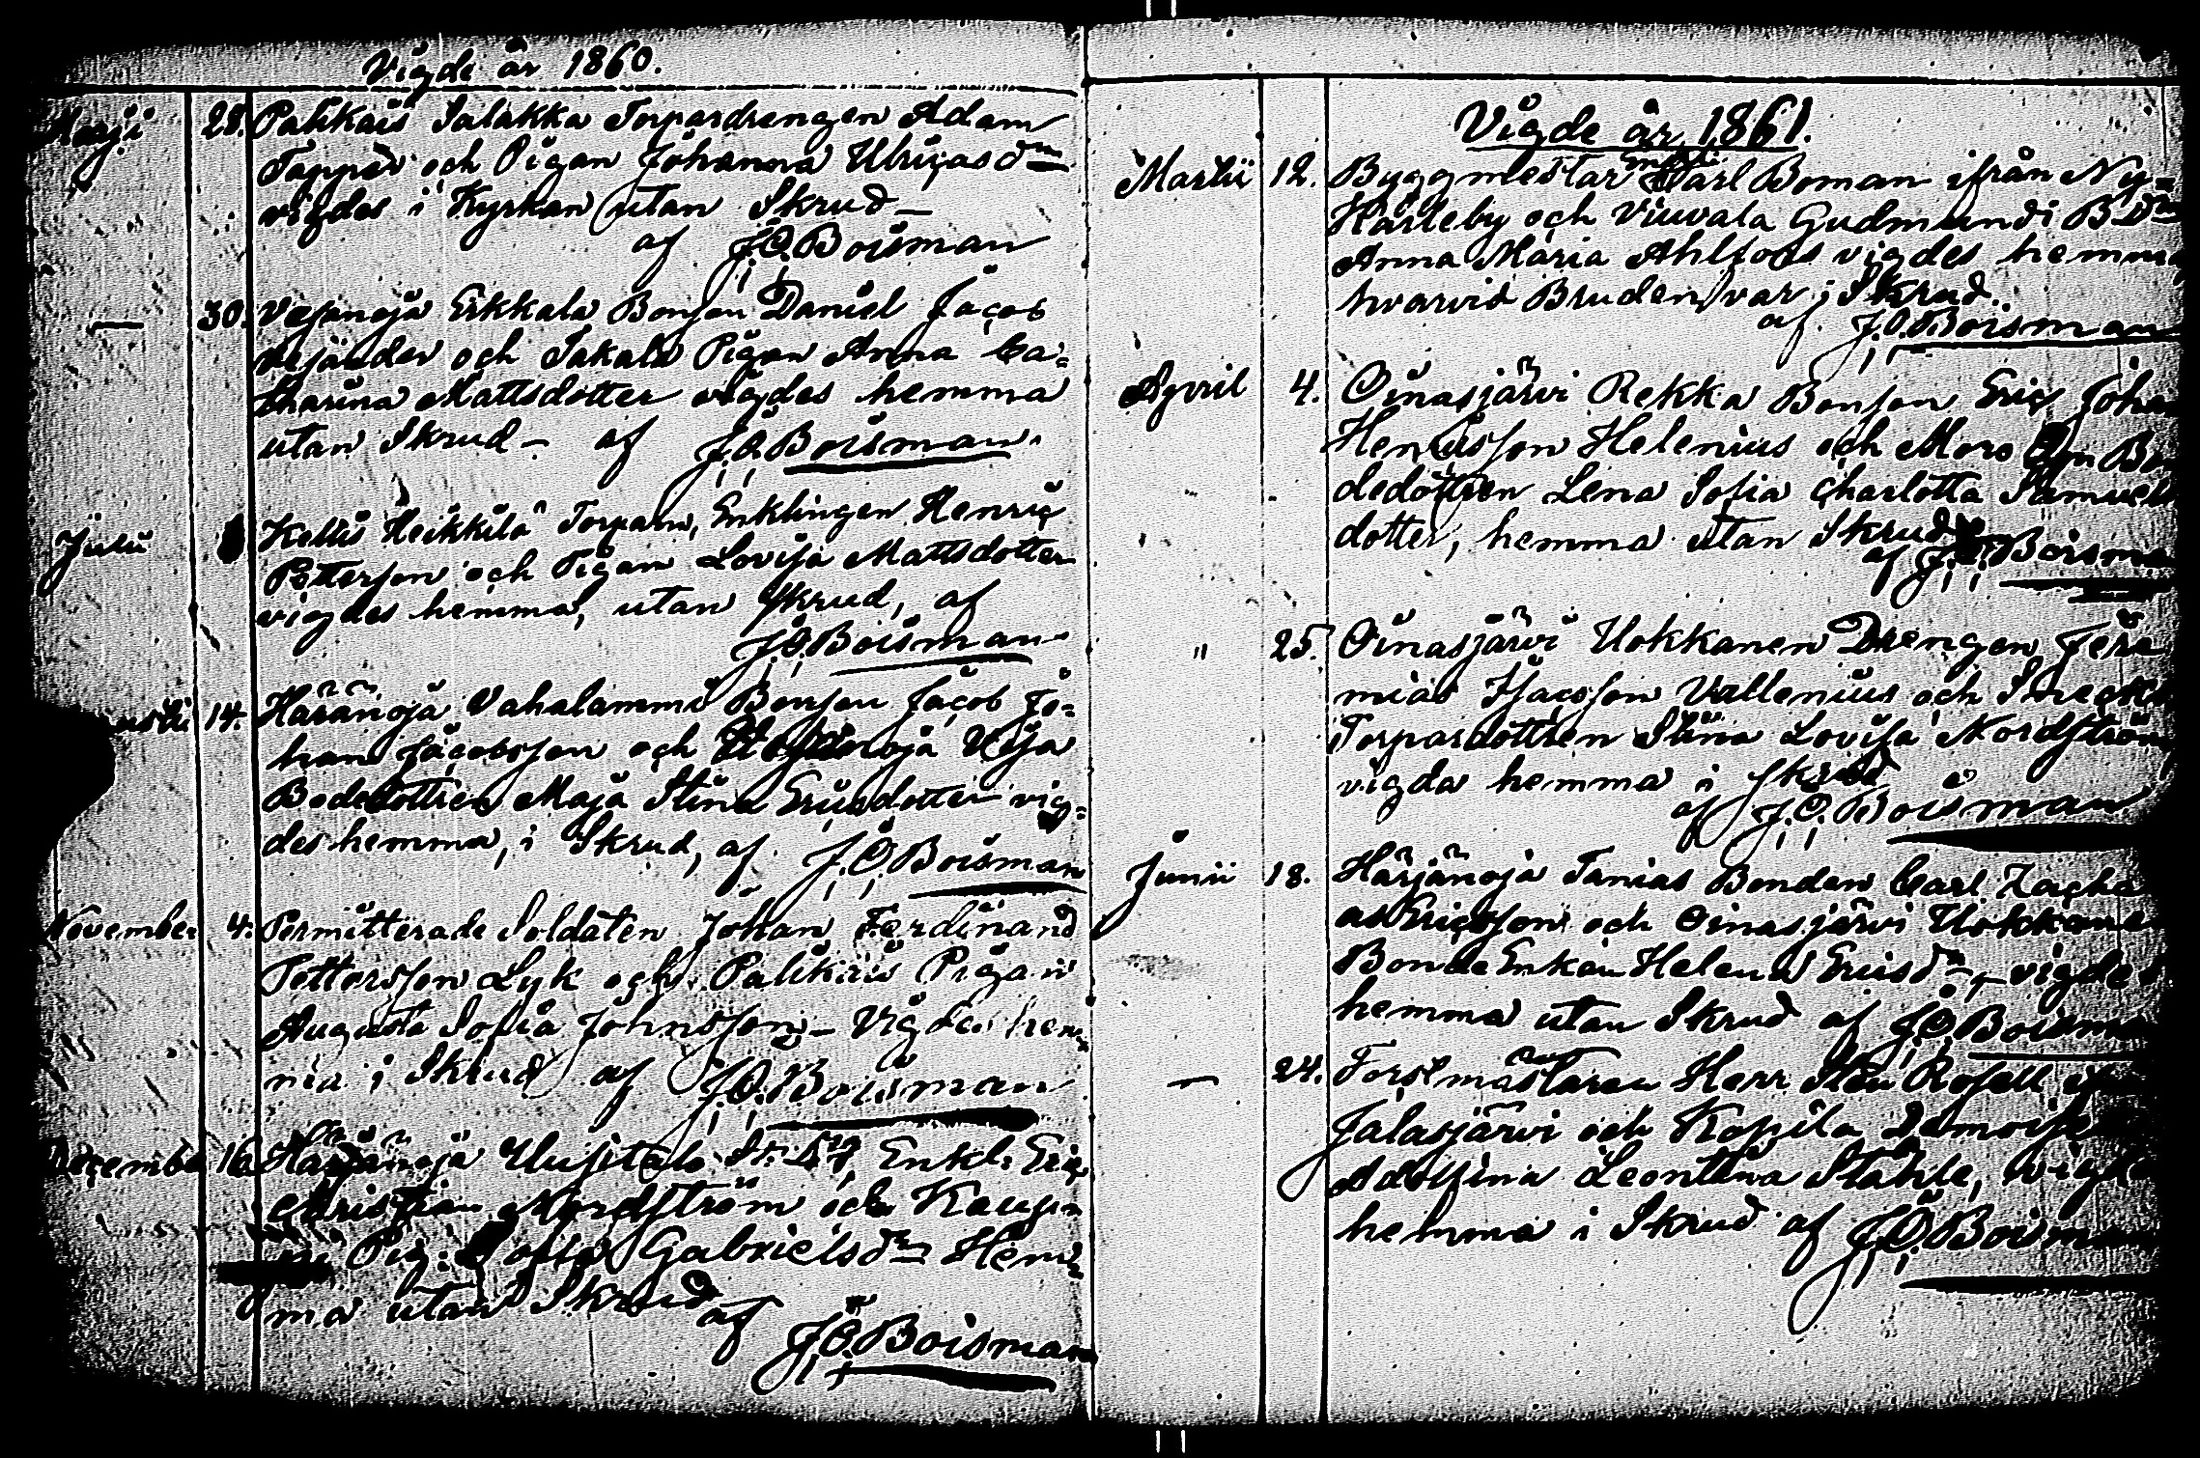 Vigde år 1860.
Maji 28. Palikais Salakka Torpardrengen Adam
Tapper och Pigan Johanna Ulricasdr
vigdes i Kyrkan utan Skrud
af J.O. Boisman
— 30. Erkkala Bonson Daniel Jacob
och Pigan Anna Ca=
tharina Mattsdotter vigdes hemma
utan Skrud – af J.O. Boisman.
Julii Heikkilä Torparn, Enklingen Henric
Pettersson och Pigan Lovisa Mattsdotter
vigdes hemma, utan Skrud, af
J.O. Boisman
14. Häränoja Vahalammi Bonson Jacob Jo=
han Jacobsson och Uja
Bodedottren Maja Stina Ericsdotter vig=
des hemma, i Skrud, af J.O. Boisman
November 4. Permitterade Soldaten Johan Ferdinand
Pettersson Lyk och Palikais Pigan
Augusta Sofia Johnsson – Vigdes hem
ma i Skrud af J.O. Boisman
December 16. Härjänoja Uusitalo Enkl. Eric
Christian Nordström och
Pig. Sofia Gabrielsdr Hem
ma utan Skrud
af J.O. Boisman
Vigde år 1861.
Martii 12. Byggmestar Karl Boman ifrån Ny=
Härleby och Viuvala Gudmundi B.Dr
Anna Maria Ahlfors vigdes hemma
hvarvid Bruden var i Skrud.
af J.O. Boisman
April 4. Oinasjärvi Rekka Bonson Eric Johan
Henricsson Helenius och Moro Bon
dedottren Lena Sofia Charlotta Samuels
dotter, hemma utan Skrud
af J.O. Boisman
" 25. Oinasjärvi Uokkanen Drengen Jere
mias Isacsson Vallenius och
Torpardottren Stina Lovisa Nordström
vigda hemma i Skrud
af J.O. Boisman
Junii 18. Härjänoja Tanias Bonden Carl Zacha
as Ericsson och Oinasjärvi Uokkane
Bonde Enkan Helena Ericsdr – vigdes
hemma utan Skrud af J.O. Boisman
— 24. Forstmästaren Herr Sten Rosell
Jalasjärvi och Kopila
Adolfina Leontina Ståhle, vigde
hemma i Skrud af J.O. Boisman